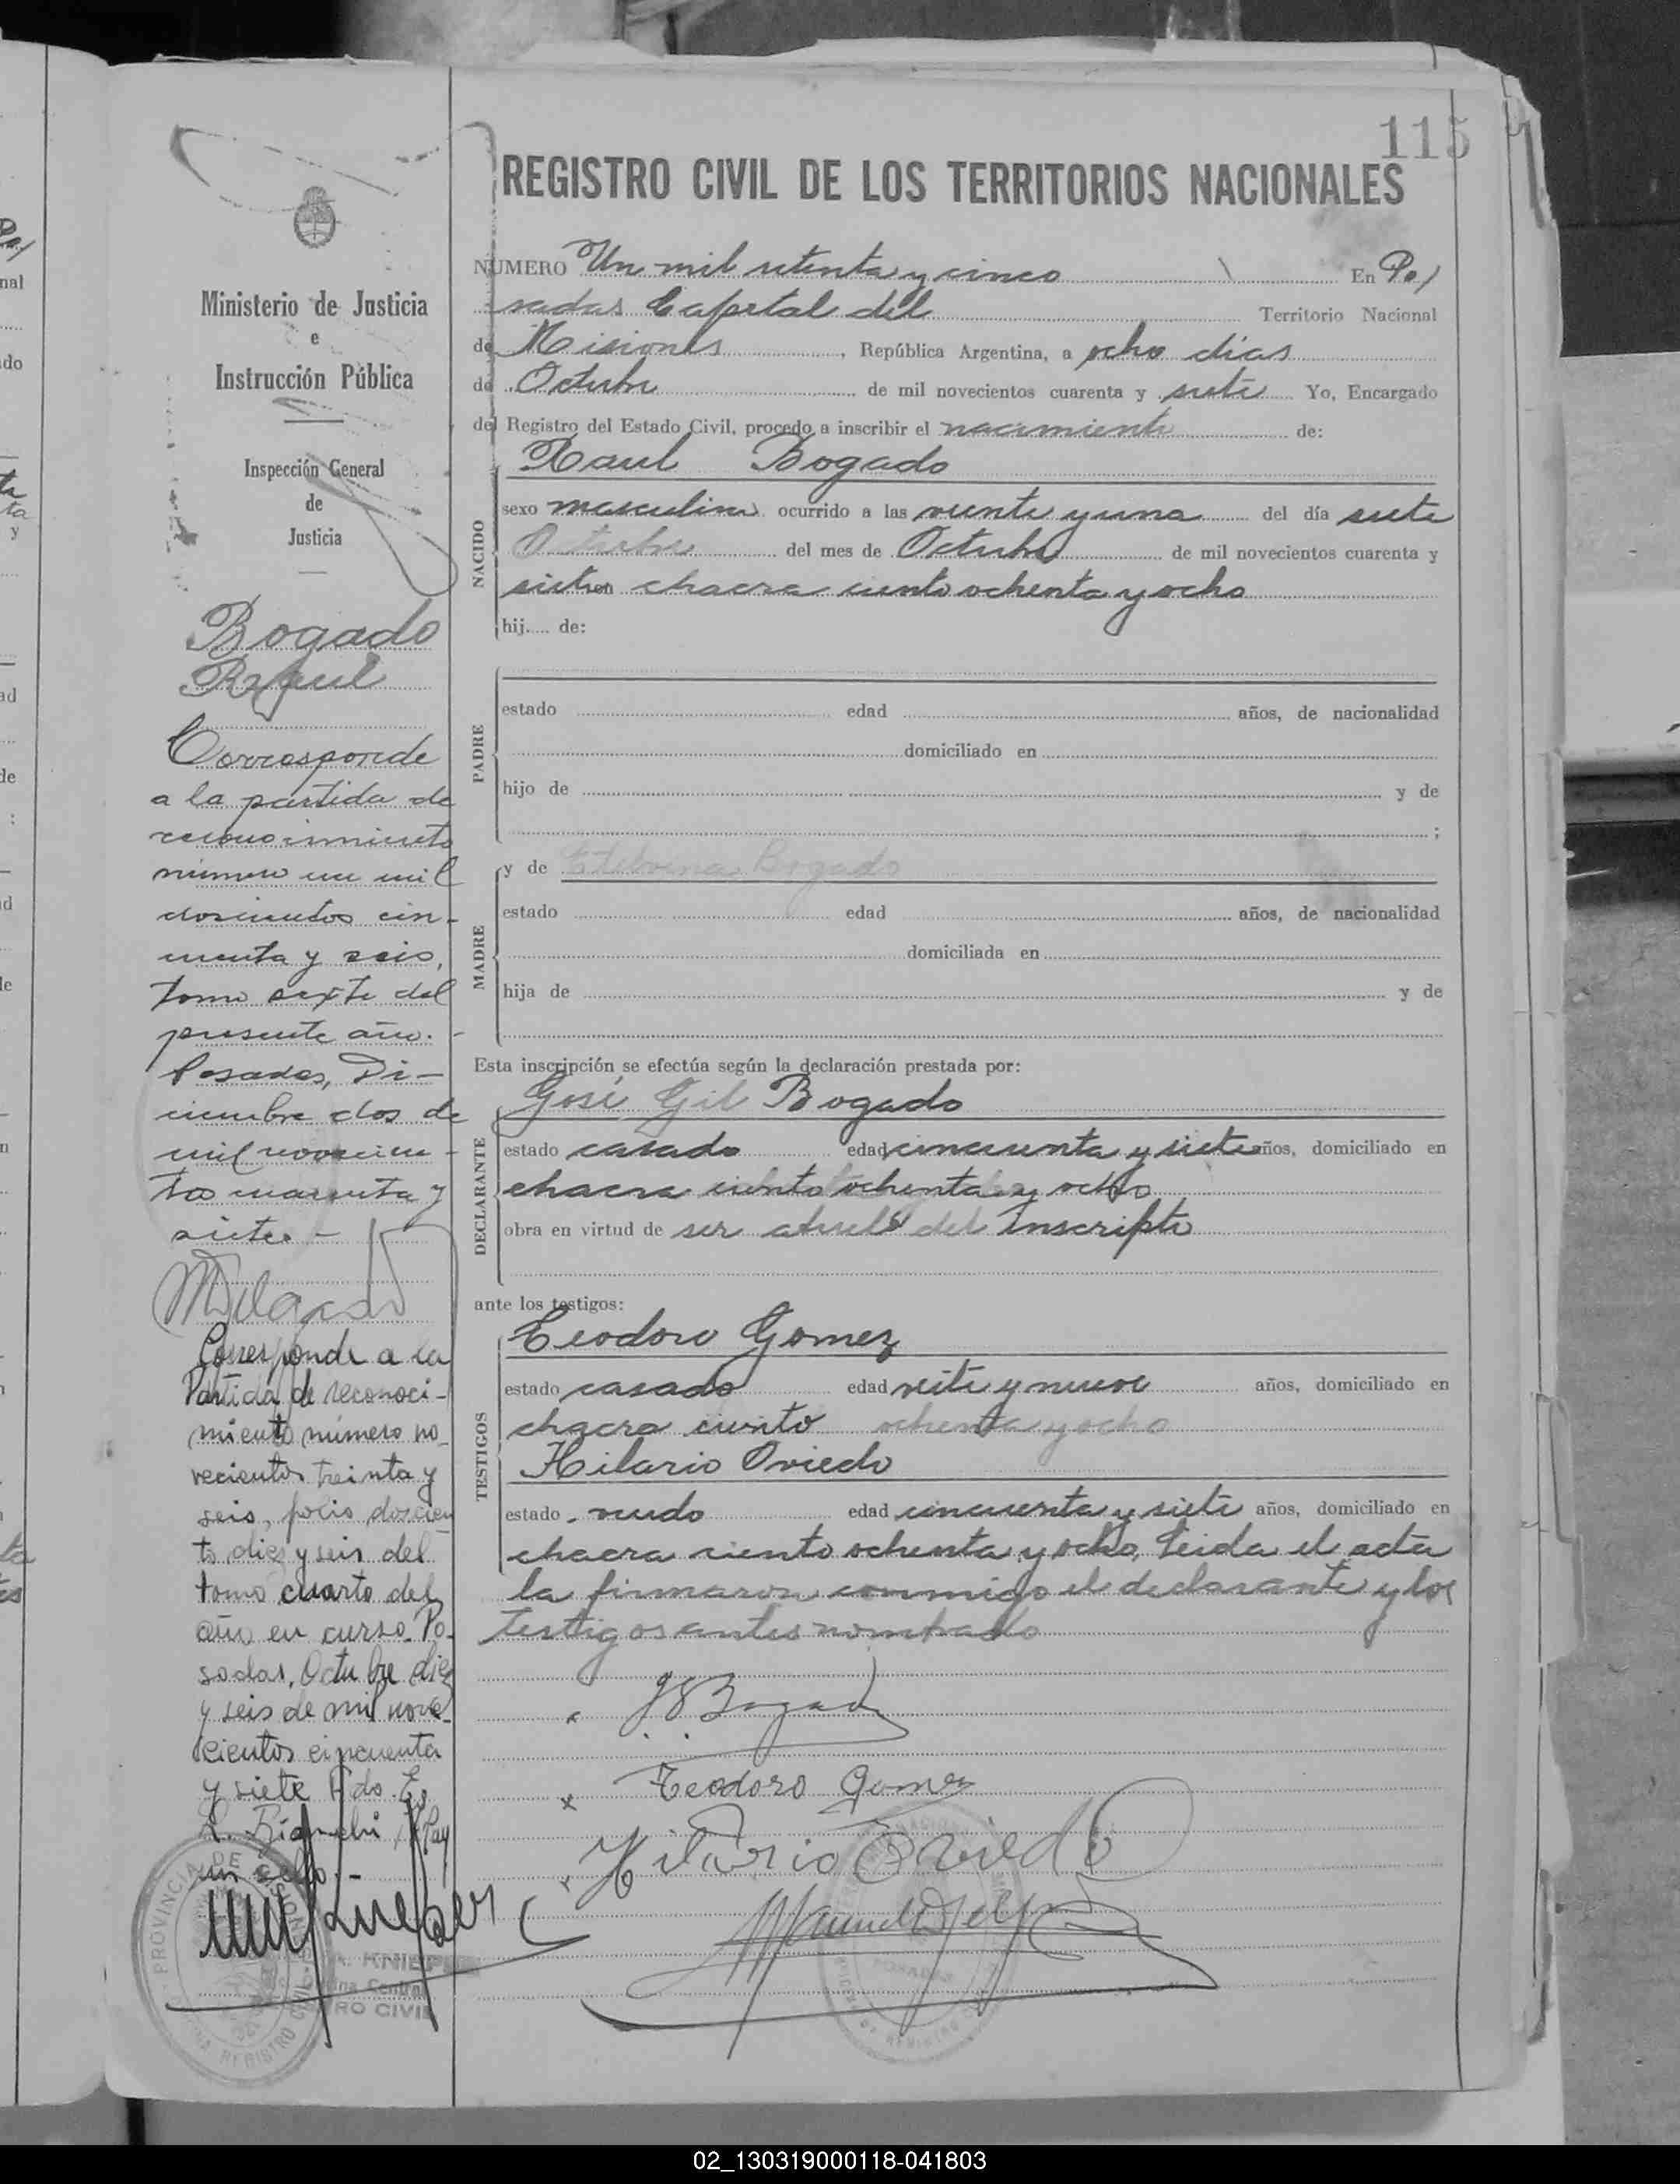 115
REGISTRO CIVIL DE LOS TERRITORIOS NACIONALES
Ministerio de Justicia
e
Instrucción Pública
Inspección General
de
Justicia
Bogado
Raul
Corresponde
a la partida de
reconocimiento
número un mil
doscientos cin-
cuenta y seis,
tomo sexto del
presente año.-
Posadas, Di-
ciembre dos de
mil novecien-
tos cuarenta y
siete.-
Corresponde a la
Partida de reconoci-
miento número no-
vecientos treinta y
seis, folio doscien
to diez y seis del
tomo cuarto del
año en curso. Po-
sadas, Octubre diez
y seis de mil nove-
cientos cincuenta
y siete Fdo. E.
L. Hay
un sello.-
PROVINCIA DE MISIONES
REGISTRO CIVIL
NUMERO Un mil setenta y cinco En Po/
sadas Capital del Territorio Nacional
de Misiones, República Argentina, a ocho días
de Octubre de mil novecientos cuarenta y siete Yo, Encargado
del Registro del Estado Civil, procedo a inscribir el nacimiento de:
Raul Bogado
NACIDO
sexo masculino ocurrido a las veinte y una del día siete
Octubre del mes de Octubre de mil novecientos cuarenta y
siete en chacra ciento ochenta y ocho
hij.... de:
PADRE
estado edad años, de nacionalidad
domiciliado en
hijo de y de
;
MADRE
y de Etelvina Bogado
estado edad años, de nacionalidad
domiciliada en
hija de y de
Esta inscripción se efectúa según la declaración prestada por:
José Gil Bogado
DECLARANTE
estado casado edad cincuenta y siete años, domiciliado en
chacra ciento ochenta y ocho
obra en virtud de ser abuelo del inscripto
ante los testigos:
Teodoro Gomez
TESTIGOS
estado casado edad veite y nueve años, domiciliado en
chacra ciento ochenta y ocho
Hilario Oviedo
estado viudo edad cincuenta y siete años, domiciliado en
chacra ciento ochenta y ocho, Leida el acta
la firmaron conmigo el declarante y los
testigos antes nombrado
JGBogado
x Teodoro Gomez
x Hilario Oviedo
02_130319000118-041803